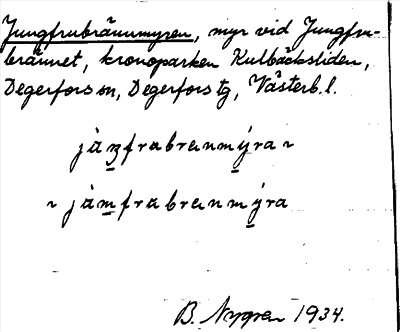 Jungfrubrännmyren, myr vid Jungfru-
brännet, kronoparken Kulbäcksliden,
Degerfors sn, Degerfors tg, Västerb. l.
jàŋfrabranmýra ~
~ jàmfrabranmýra
B. Nygren 1934.